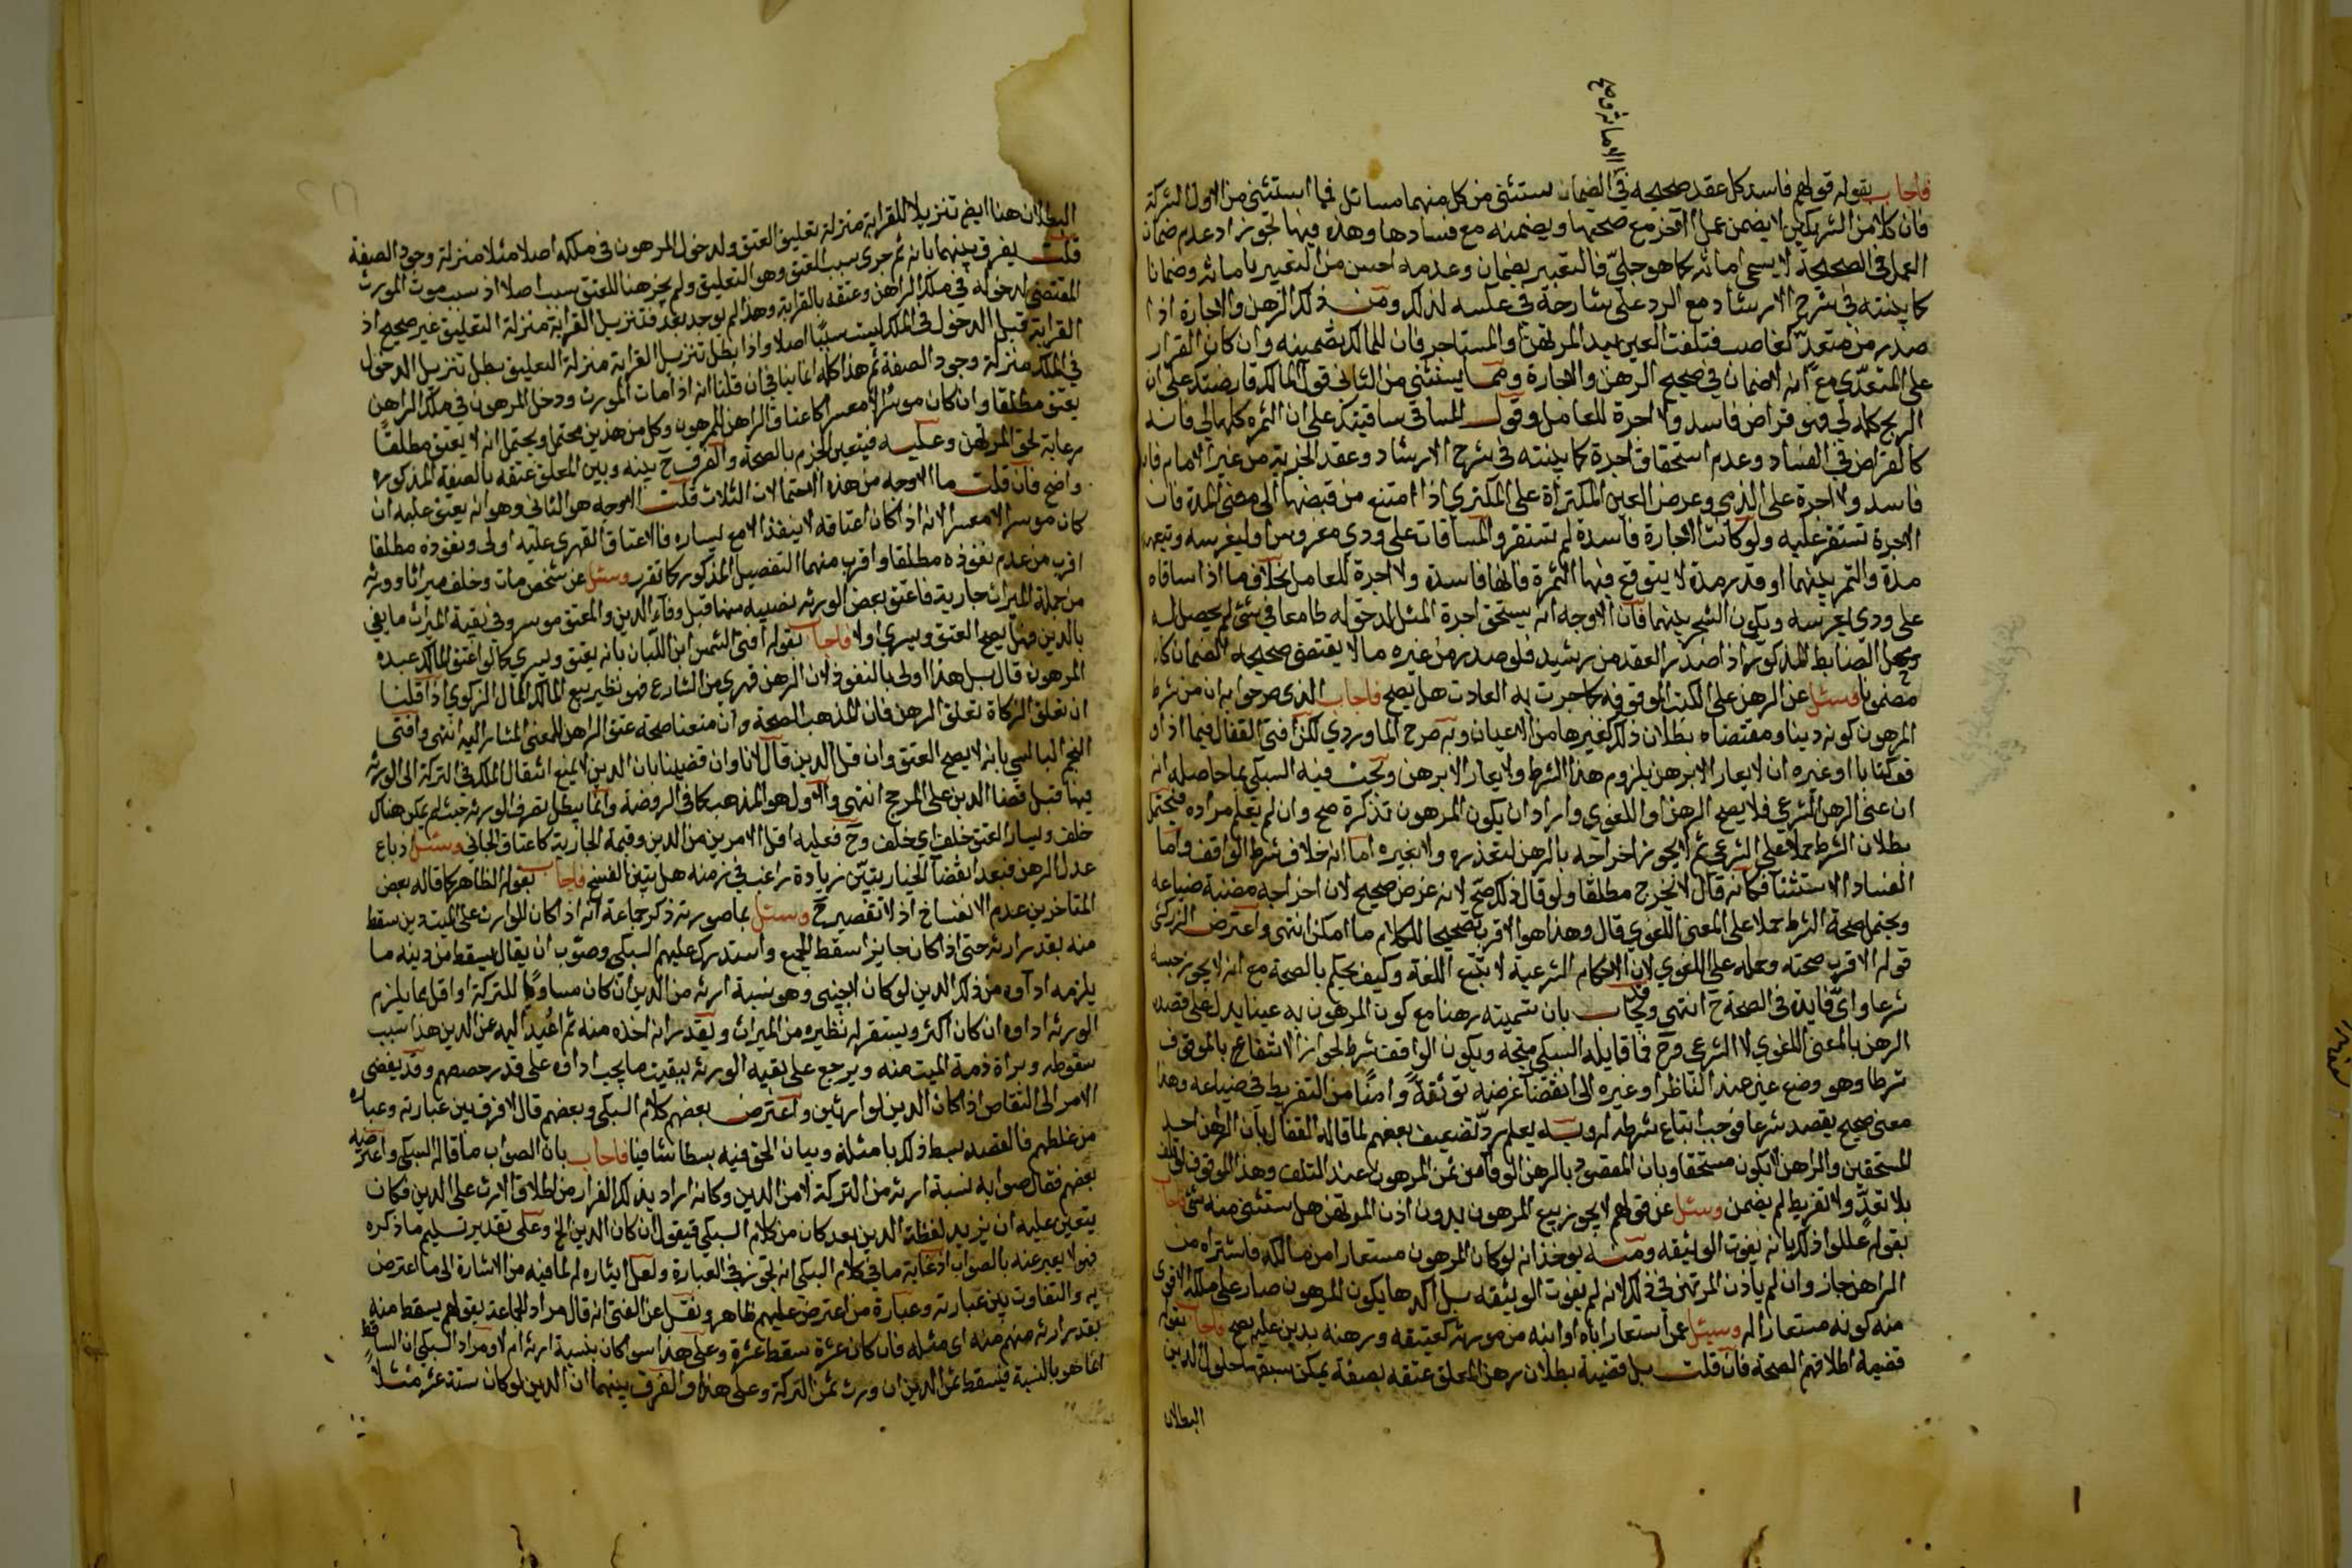 الامانة وصح
فاجاب بقوله قولهم فاسد كل عقد صحيحه في الضمان يستثنى من كل منهما مسائل فمما استثنى من الاول الشركة
فان كلا من الشريكين لا يضمن عمل الاخر مع صحتها ويضمنه مع فسادها وهذه فيها تجوز اذ عدم ضمان
العمل في الصحيحة لا يسمى امانة كما هو جلي فالتعبير بضمان وعدمه احسن من التعبير بامانة وضمانا
كما بينته في شرح الارشاد مع الرد على شارحه في عكسه لذلك ومن ذلك الرهن والاجارة اذا
صدر من متعد كغاصب فتلفت العين بيد المرتهن او المستاجر فان للمالك تضمينه وان كان القرار
على المتعدي مع انه لا ضمان في صحيح الرهن والاجارة ومما يستثنى من الثاني قول المالك قارضتك على ان
الربح كله لي فهو قراض فاسد ولا اجرة للعامل وقول المساقي ساقيتك على ان الثمرة كلها لي فانه
كالقراض في الفساد وعدم استحقاق اجرة كما بينته في شرح الارشاد وعقد الجزية من غير الامام فانه
فاسد ولا اجرة على الذمي وعرض العين المكتراة على المكتري اذا امتنع من قبضها الى مضي المدة فان
الاجرة تستقر عليه ولو كانت الاجارة فاسدة لم تستقر والمساقات على ودي مغروس او ليغرسه وتعهده
مدة والثمر بينهما او قدر مدة لا يتوقع فيها الثمرة فانها فاسدة ولا اجرة للعامل بخلاف ما اذا ساقاه
على ودي ليغرسه ويكون الشجر بينهما فان الاوجه انه يستحق اجرة المثل لدخوله طامعا في شيء لم يحصل له
ومحل الضابط المذكور اذا صدر العقد من رشيد فلو صدر من غيره ما لا يقتضي صحيحه الضمان كان
مضمونا وسئل عن الرهن على الكتب الموقوفة كما جرت به العادت هل يصح فاجاب الذي صرحوا به ان من شرط
المرهون كونه دينا ومقتضاه بطلان ذلك كغيرها من الاعيان وبه صرح الماوردي لكن افتى القفال فيما اذا
وقف كتابا او غيره ان لا يعار الا برهن يلزوم هذا الشرط ولا يعار الا برهن وبحث فيه السبكي بما حاصله انه
ان عنى الرهن الشرعي فلا يصح الرهن او اللغوي واراد ان يكون المرهون تذكرة صح وان لم يعلم مراده فيحتمل
بطلان الشرط حملا على الشرعي ثم لا يجوز اخراجه بالرهن لتعذره ولا بغيره اما انه خلاف شرط الواقف واما
الفساد الاستثنا فكانه قال لا يخرج مطلقا ولو قال ذلك صح لانه غرض صحيح لان اخراجه مظنة ضياعه
ويحتمل صحة الشرط حملا على المعنى اللغوي قال وهذا هو الاقرب تصحيحا للكلام ما امكن انتهى واعترض الزركشي
قوله الاقرب صحته وحمله على اللغوي لان الاحكام الشرعية لا تتبع اللغة وكيف يحكم بالصحة مع انه لا يجوز حبسه
شرعا واي فايدة في الصحة ح انتهى ويجاب بان تسميته رهنا مع كون المرهون به عينا يدل على قصده
الرهن بالمعنى اللغوي لا الشرعي وح فما قاله السبكي متجه ويكون الواقف شرط لجواز الانتفاع بالموقوف
شرطا وهو وضع عين عند الناظر او غيره الى انقضا غرضه توثقة وامنا من التفريط في ضياعه وهذا
معنى صحيح يقصد شرعا فوجب اتباع شرطه له وبه يعلم رد تضعيف بعضهم لما قاله القفال بان الراهن احد
المستحقين والراهن لا يكون مستحقا وبان المقصود بالرهن الوفا من ثمن المرهون عند التلف وهذا الموقوف لو تلف
بلا تعد ولا تفريط لم يضمن وسئل عن قولهم لا يجوز بيع المرهون بدون اذن المرتهن هل يستثنى منه شيء فاجاب
بقوله عللوا ذلك بانه يفوت الوثيقه ومنه يوخذ انه لو كان المرهون مستعارا من مالكه فاشتراه منه
الراهن جاز وان لم ياذن المرتهن في ذلك لانه لم يفوت الوثيقه بل اكدها بكون المرهون صار على ملكه الاقوى
منه كونه مستعارا له وسئل عمن استعار اباه او ابنه من مورثه كعتيقه ورهنه بدين عليه يصح فاجاب بقوله
قضية اطلاقهم الصحة فان قلت بل قضية بطلان رهن المعلق عتقه بصفة يمكن سبقها حلول الدين
البطلان
البطلان هنا ايضا تنزيلا للقرابة منزلة تعليق العتق ولدخول المرهون في ملكه اصلا مثلا منزلة وجود الصفة
قلت يفرق بينهما بانه ثم جرى سبب العتق وهو التعليق ولم يجز هنا للعتق سبب اصلا اذ سبب موت المورث
المقتضي لدخوله في ملك الراهن وعتقه بالقرابة وهذا لم يوجد بعد فتنزيل القرابة منزلة التعليق غير صحيح اذ
القرابة قبل الدخول في الملك ليست سببا اصلا واذا بطل تنزيل القرابة منزلة التعليق بطل تنزيل الدخول
في الملك منزلة وجود الصفة ثم هذا كله انما ياتي في ان قلنا انه اذا مات المورث ودخل المرهون في ملك الراهن
يعتق مطلقا وان كان موسرا لا معسرا كاعتاق الراهن المرهون وكل من هذين محتمل ويحتمل انه لا يعتق مطلقا
رعاية لحق المرتهن وعكسه فيتعين الجزم بالصحة والفرق ح بينه وبين المعلق عتقه بالصفة المذكورة
واضح فان قلت ما الاوجه من هذه الاحتمالات الثلاث قلت الاوجه هو الثاني وهو انه يعتق عليه ان
كان موسرا لا معسرا لانه اذا كان اعتاقه لا ينفذ الا مع يساره فالاعتاق القهري عليه اولى ونفوذه مطلقا
اقرب من عدم نفوذه مطلقا واقرب منهما التفصيل المذكور كما تقرر وسئل عن شخص مات وخلف ميراثا وورثة
من جملة الميراث جارية فاعتق بعض الورثة نصيبه منها قبل وفاء الدين والمعتق موسر وفي بقية الميراث ما يفي
بالدين فهل يصح العتق ويسري او لا فاجاب بقوله افتى الشمس ابن اللبان بانه يعتق ويسري كما لو اعتق المالك عبده
المرهون قال بل هذا اولى بالنفوذ لان الرهن قهري من الشارع فهو نظير بيع المالك المال الزكوي اذا قلنا
ان تعلق الزكاة تعلق الرهن فان المذهب الصحة وان منعنا صحة عتق الراهن للمعنى المشار اليه انتهى وافتى
النجم البالسي بانه لا يصح العتق وان قل الدين قال لانا وان قضينا بان الدين لا يمنع انتقال الملك في التركة الى الورثة
فيها قبل قضا الدين على المرجح انتهى والاول هو المذهب كما في الروضة وانما يبطل تصرف الورثة حيث لم يكن هناك
خلف ويسار المعتق خلف اي خلف وح فعليه اقل الامرين من الدين وقيمة الجارية كاعتاق الجاني وسئل اذ باع
عدل الرهن فبعد انقضا الخيار يتبين زيادة راغب في زمنه هل يتبين الفسخ فاجاب بقوله الظاهر كما قاله بعض
المتاخرين عدم الانفساخ اذ لا تقصير ح وسئل بما صورته ذكر جماعة انه اذا كان للوارث على الميت دين سقط
منه بقدر ارثه حتى اذا كان جايز اسقط الجميع واستدرك عليهم السبكي وصوب ان يقال يسقط من دينه ما
يلزمه اداؤه من ذلك الدين لو كان لاجنبي وهو نسبة ارثه من الدين ان كان مساويا للتركة او اقل مما يلزم
الورثة اداوه ان كان اكثر ويستقر له نظيره من الميراث ويقدر انه اخذه منه ثم اعيد اليه عن الدين هذا سبب
سقوطه وبراة ذمة الميت منه ويرجع على بقية الورثة ببقيت ما يجب اداؤه على قدر حصصهم وقد يفضي
الامر الى التقاص اذا كان الدين لوارثين واعترض بعضهم كلام السبكي وبعضهم قال لا فرق بين عبارته وعبارة
من غلطهم فالقصد بسط ذلك بامثلة وبيان الحق فيه بسطا شافيا فاجاب بان الصواب ما قاله السبكي واعترضه
بعضهم فقال صوابه نسبة ارثه من التركة لا من الدين وكانه اراد بذلك الفرار من اطلاق الارث على الدين فكان
يتعين عليه ان يزيد لفظة الدين بعد كان من كلام السبكي فيقول ان كان الدين الخ وعلى تقدير تسليم ما ذكره
فهو لا يعبر عنه بالصواب اذ غاية ما في كلام السبكي انه تجوز في العبارة ولعل ايثاره له لما فيه من الاشارة الى ما اعترض
به والتفاوت بين عبارته وعبارة من اعترض عليهم ظاهر ونقل عن الغزي انه قال مراد الجماعة بقولهم يسقط منه
بقدر ارثه منهم منه اي مثله فان كان عشرة سقط عشرة وعلى هذا سوا كان بنسبة ارثه ام لا ومراد السبكي ان الساقط
انما هو بالنسبة فيسقط ثمن الدين ان ورث ثمن التركة وعلى هذا والفرق بينهما ان الدين لو كان ستة عشر مثلا